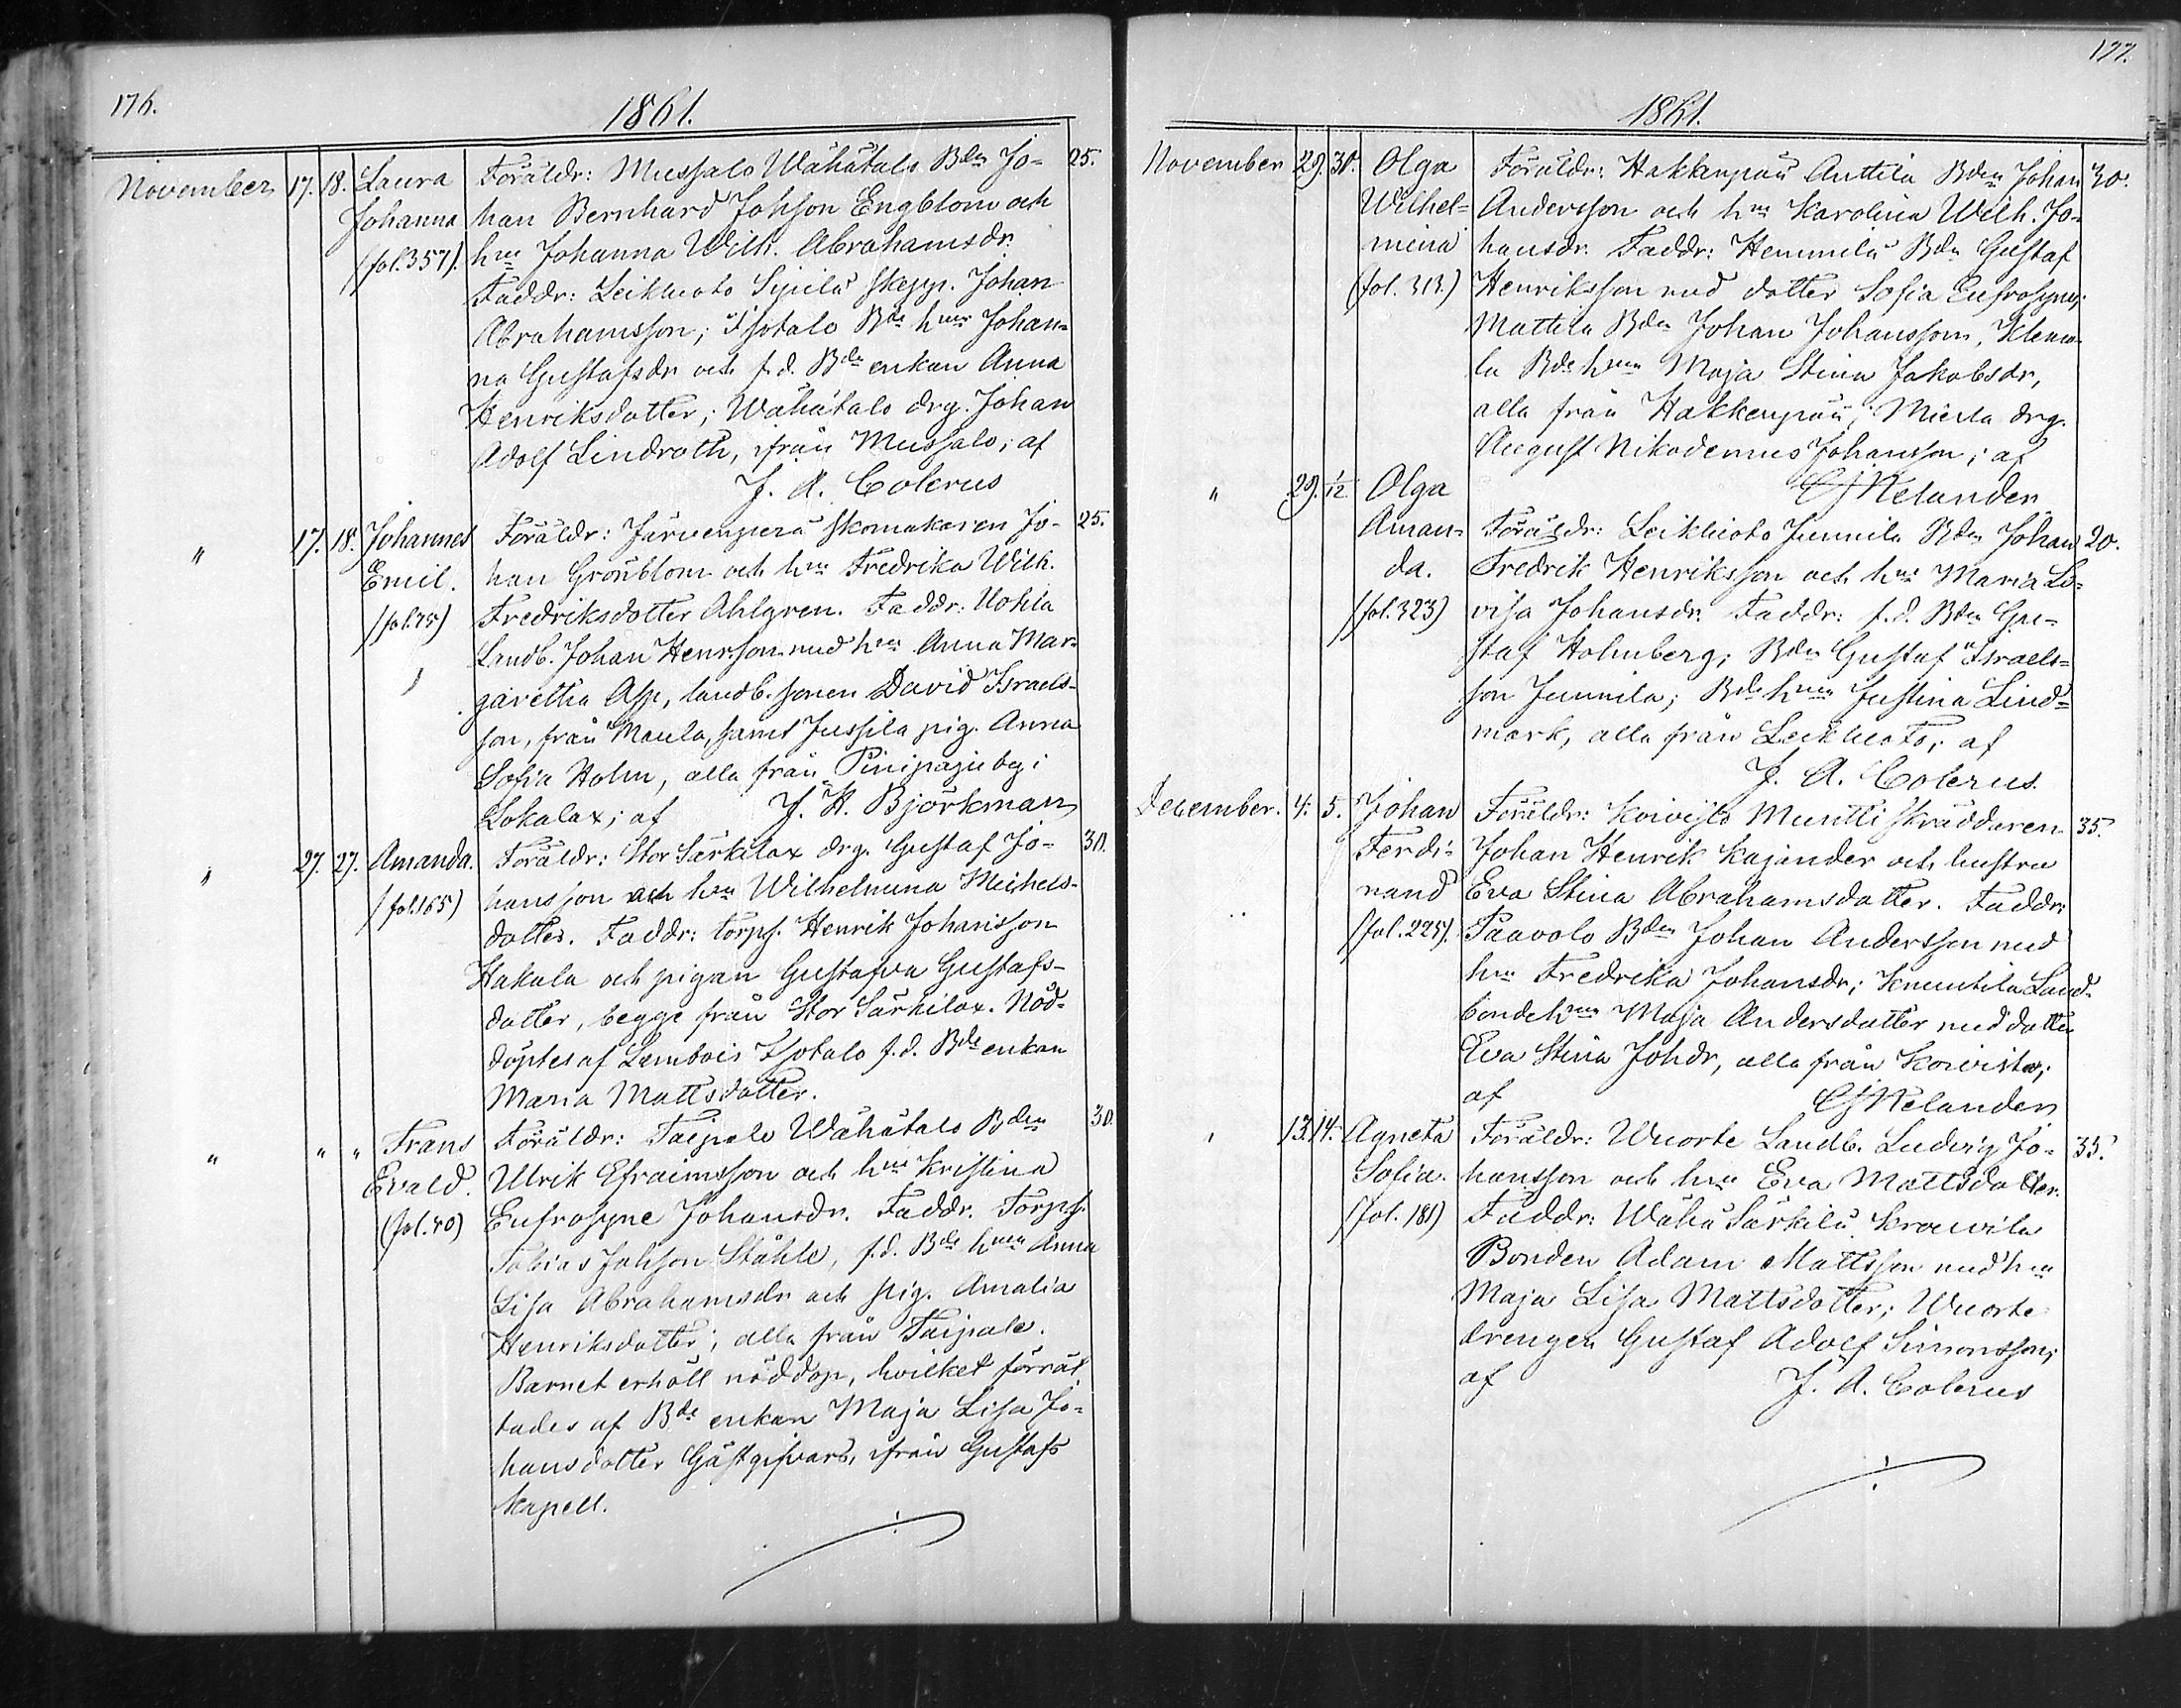 176.
1861.
November 17. 18. Laura Föräldr: Mussalo Wähätalo Bdn Jo- 25.
Johanna han Bernhard Johsson Engblom och
(fol. 357). hru Johanna Wilh. Abrahamsdr.
Faddr: Leikluoto Sipilä skepp. Johan
Abrahamsson; Isotalo Bde hru Johan-
na Gustafsdr och f.d. Bde enkan Anna
Henriksdotter; Wähätalo drg. Johan
Adolf Lindroth, från Mussalo; af
J. A. Colerus
" 17. 18. Johannes Föräldr: Järvenperä skomakaren Jo- 25.
Emil. han Grönblom och hru Fredrika Wilh.
(fol. 75) Fredriksdotter Ahlgren. Faddr: Uohla
Landb. Johan Henrsson med hru Anna Mar-
garetha Asp, landb. sonen David Israels-
son, från Maula, samt Jussila pig. Anna
Sofia Holm, alla från Pinipaju by i
Lokalax; af J. H. Björkman
" 27. 27. Amanda. Föräldr: Stor Särkilax drg. Gustaf Jo- 30.
(fol. 165) hansson och hru Wilhelmina Michels-
dotter. Faddr: torp. Henrik Johansson
Hakala och pigan Gustafva Gustafs-
dotter, begge från Stor Särkilax. Nöd-
döptes af Lembois Isotalo f.d. Bde enkan
Maria Mattsdotter.
" " " Frans Föräldr: Taipale Wähätalo Bden 30.
Evald. Ulrik Efraimsson och hru Kristina
(fol. 40) Eufrosyne Johansdr. Faddr. Torp.
Tobias Johsson Ståhle, f.d. Bde hrun Anna
Lisa Abrahamsdr och pig. Amalia
Henriksdotter; alla från Taipale.
Barnet erhöll nöddop, hvilket förrät
tades af Bde enkan Maja Lisa Jo-
hansdotter Gästgifvars, från Gustafs
kapell.
177.
1861.
November 29. 30. Olga Föräldr: Hakkenpää Anttila Bden Johan 30.
Wilhel- Andersson och hru Karolina Wilh. Jo-
mina hansdr. Faddr: Hemmilä Bdn Gustaf
(fol. 313.) Henriksson med dotter Sofia Eufrosyne;
Mattila Bdn Johan Johansson, Klemo-
la Bde hrun Maja Stina Jakobsdr,
alla från Hakkenpää; Mierla drg.
August Nikodemus Johansson; af
CJ Relander
" 29. 1/12 Olga
Aman- Föräldr: Leikluoto Junnila Bden Johan 20.
da. Fredrik Henriksson och hru Maria Lo-
(fol. 323) visa Johansdr. Faddr: f.d. Bden Gu-
staf Holmberg; Bdn Gustaf Israels-
son Junnila; Bde hrun Justina Lind-
mark, alla från Leikluoto; af
J. A. Colerus.
December. 4. 5. Johan Föräldr: Koivisto Muntti skräddaren 35.
Ferdi- Johan Henrik Kajander och hustru
nand Eva Stina Abrahamsdotter. Faddr:
(fol. 225). Paavolo Bden Johan Andersson med
hru Fredrika Johansdr; Knuutila Land-
bonde hrun Maja Andersdotter med dotter
Eva Stina Johdr, alla från Koivisto;
af CJ Relander
" 13. 14. Agneta Föräldr: Wuorte Landb. Ludvig Jo- 35.
Sofia. hansson och hru Eva Mattsdotter.
(fol. 181) Faddr: Wähä Särkilä Krouvila
Bonden Adam Mattsson med hru
Maja Lisa Mattsdotter; Wuorte
drengen Gustaf Adolf Simonsson;
af J. A. Colerus